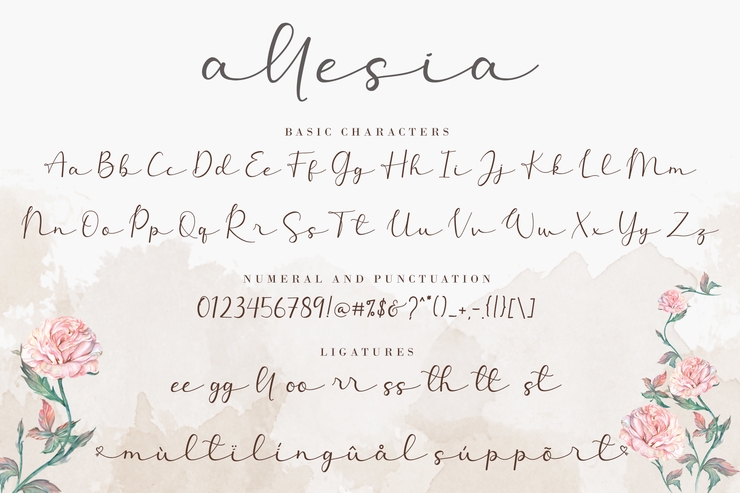 allesia
BASIC CHARACTERS
Aa Bb Cc Dd Ee Ff Gg Hh Ii Jj Kk Ll Mm
Nn Oo Pp Qq Rr Ss Tt Uu Vv Ww Xx Yy Zz
NUMERAL AND PUNCTUATION
0123456789!@#%$&?^*()_+,-.{|}[\]
LIGATURES
ee gg ll oo rr ss th tt st
mùltïlíngûål súppõrt